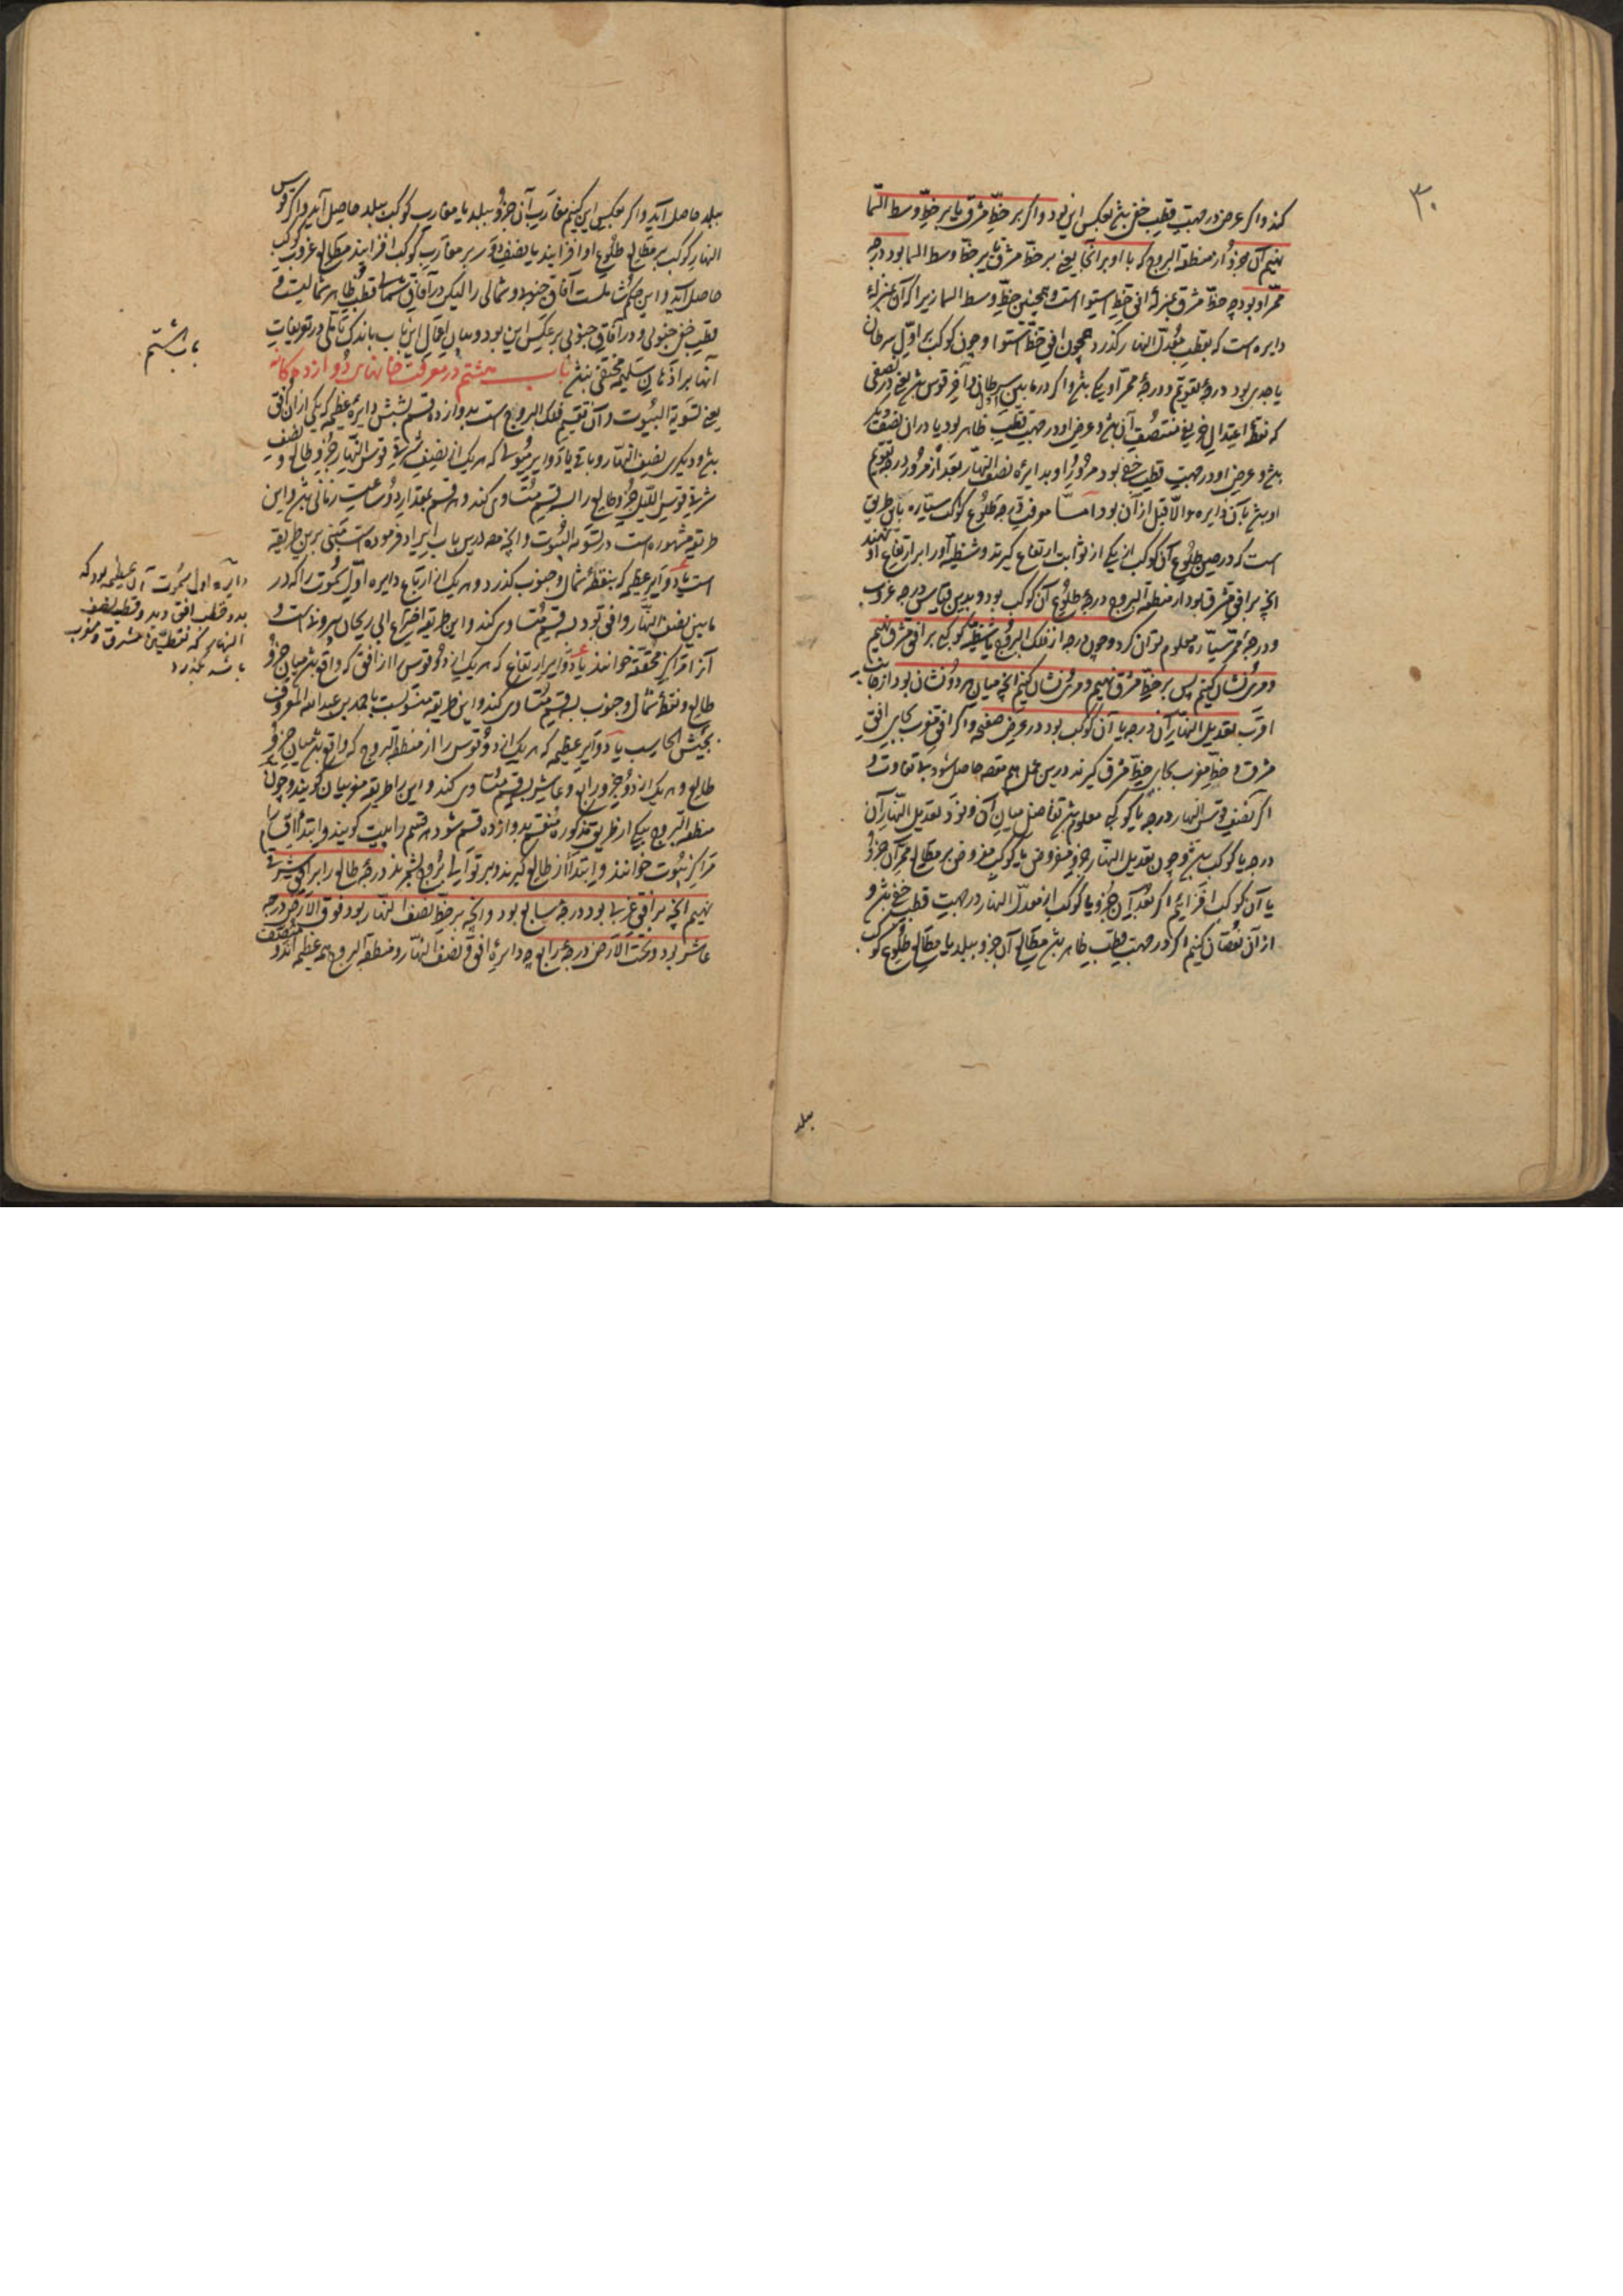 ۳۰
کند و اگر عرض در جهت قطب خفی بشد بعکس این بود و اگر بر خط مشرق یا بر خط وسط السما
نهیم آن جزؤ از منطقة البروج که با او بر آنجا یعنی بر خط مشرق یا بر خط وسط السما بود درجه
ممر او بود چه خط مشرق بمنزلهٔ افق خط استوا است و همچنین خط وسط السما زیرا که آن بمنزله
دایره است که بقطب معدل النهار گذرد همچون افق خط استوا و چون کوکب بر اول سرطان
یا جدی بود درجهٔ تقویم و درجهٔ ممر او یکی بشد و اگر در مابین اول سرطان و آخر قوس بشد یعنی در نصفی
که نقطهٔ اعتدال خریفی منتصف آن بشد و عرض او در جهت قطب ظاهر بود یا در آن نصف دیگر
بشد و عرض او در جهت قطب خفی بود مرور او بدایرهٔ نصف النهار بعد از مرور درجه تقویم
او بشد بآن دایره والا قبل از آن بود اما معرفت درجه طلوع کواکب سیاره باین طریق
است که در حین طلوع آن کوکب از یکی از ثوابت ارتفاع گیرند و شظیه آنرا بر ارتفاع او نهند
آنچه بر افق مشرق بود از منطقة البروج درجهٔ طلوع آن کوکب بود و بدین قیاس درجه غروب
و درجهٔ ممر سیاره معلوم توان کرد و چون درجه از فلک البروج یا شظیهٔ کوکبی بر افق مشرق نهیم
و مری نشان کنیم پس بر خط مشرق نهیم و مری نشان کنیم آنچه میان هر دو نشان بود از جانب
اقرب تعدیل النهار آن درجه یا آن کوکب بود در عرض صفحه و اگر افق مغرب بجای افق
مشرق و خط مغرب بجای خط مشرق گیرند درین عمل هم مقصد حاصل شود بی تفاوت و
اگر نصف قوس النهار درجه یا کوکبی معلوم بشد تفاضل میان آن و نود تعدیل النهار آن
درجه یا کوکب بشد و چون تعدیل النهار جزو مفروض یا کوکب مفروض بر مطالع ممر آن جزؤ
یا آن کوکب افزاییم اگر بعد آن جزو یا کوکب از معدل النهار در جهت قطب خفی بشد و
از آن نقصان کنیم اگر در جهت قطب ظاهر بشد مطالع آن جزو ببلد یا مطالع طلوع کوکب
ببلد
ببلد حاصل آید و اگر بعکس این کنیم مغارب آن جزؤ ببلد یا مغارب کوکب ببلد حاصل آید و اگر قوس
النهار کوکب بر مطالع طلوع او افزایند یا نصف دور بر مغارب کوکب افزایند مطالع غروب کوکب
حاصل آید و این حکم شاملست آفاق جنوبی و شمالی را لیکن در آفاق شمالی قطب ظاهر شمالیست و
قطب خفی جنوبی و در آفاق جنوبی بر عکس این بود و بیان اعمال این باب باندک تاملی در تعریفات
آنها بر اذهان سلیمه مخفی نبشد باب هشتم در معرفت خانهای دوازده گانه
یعنی تسویة البیوت و آن تقسیم فلک البروج است بدوازده قسم بشش دایرهٔ عظیمه که یکی از آن افق
بشد و دیگری نصف النهار و باقی یا دوایر میول که هر یک از نصف شرقی قوس النهار جزؤ طالع و نصف
شرقی قوس اللیل جزؤ طالع را بسه قسم متساوی کند و هر قسم بمقدار دو ساعت زمانی بشد و این
طریقه مشهوره است در تسویه البیوت و آنچه مص درین باب ایراد فرموده است مبتنی برین طریقه
است یا دوایر عظیمه که بنقطهٔ شمال و جنوب گذرد و هر یک از ارباع دایره اول سموت را که در
مابین نصف النهار و افق بود بسه قسم متساوی کند و این طریقه اختراع ابی ریحان بیرونیست و
آنرا مراکز محققه خوانند یا دوایر ارتفاع که هر یک از دو قوس را از افق که واقع بشد میان جزؤ
طالع و نقطهٔ شمال و جنوب بسه قسم متساوی کند و این طریقه منسوبست باحمد بن عبدالله المعروف
بحبش الحاسب یا دوایر عظیمه که هر یک از دو قوس را از منطقة البروج که واقع بشد میان جزؤ
طالع و هر یک از دو جزو رابع و عاشر بسه قسم متساوی کند و این را طریقه مغربیان گویند و چون
منطقة البروج بیکی از طریق مذکوره منقسم بدوازده قسم شود هر قسم را بیت گویند و ابتدا اقسام را
مراکز بیوت خوانند و ابتدا از طالع گیرند و بر توالی بروج بشمرند درجهٔ طالع را بر افق شرقی
نهیم آنچه بر افق غربی بود درجهٔ سابع بود و آنچه بر خط نصف النهار بود فوق الارض درجه
عاشر بود و تحت الارض درجهٔ رابع چه دایرهٔ افق و نصف النهار و منطقة البروج همه عظیمه اند و منصف
باب هشتم
دایره اول سموت آن عظیمه بود که
بدو قطب افق و بدو قطب نصف
النهار که نقطتین مشرق و مغرب
باشد بگذرد